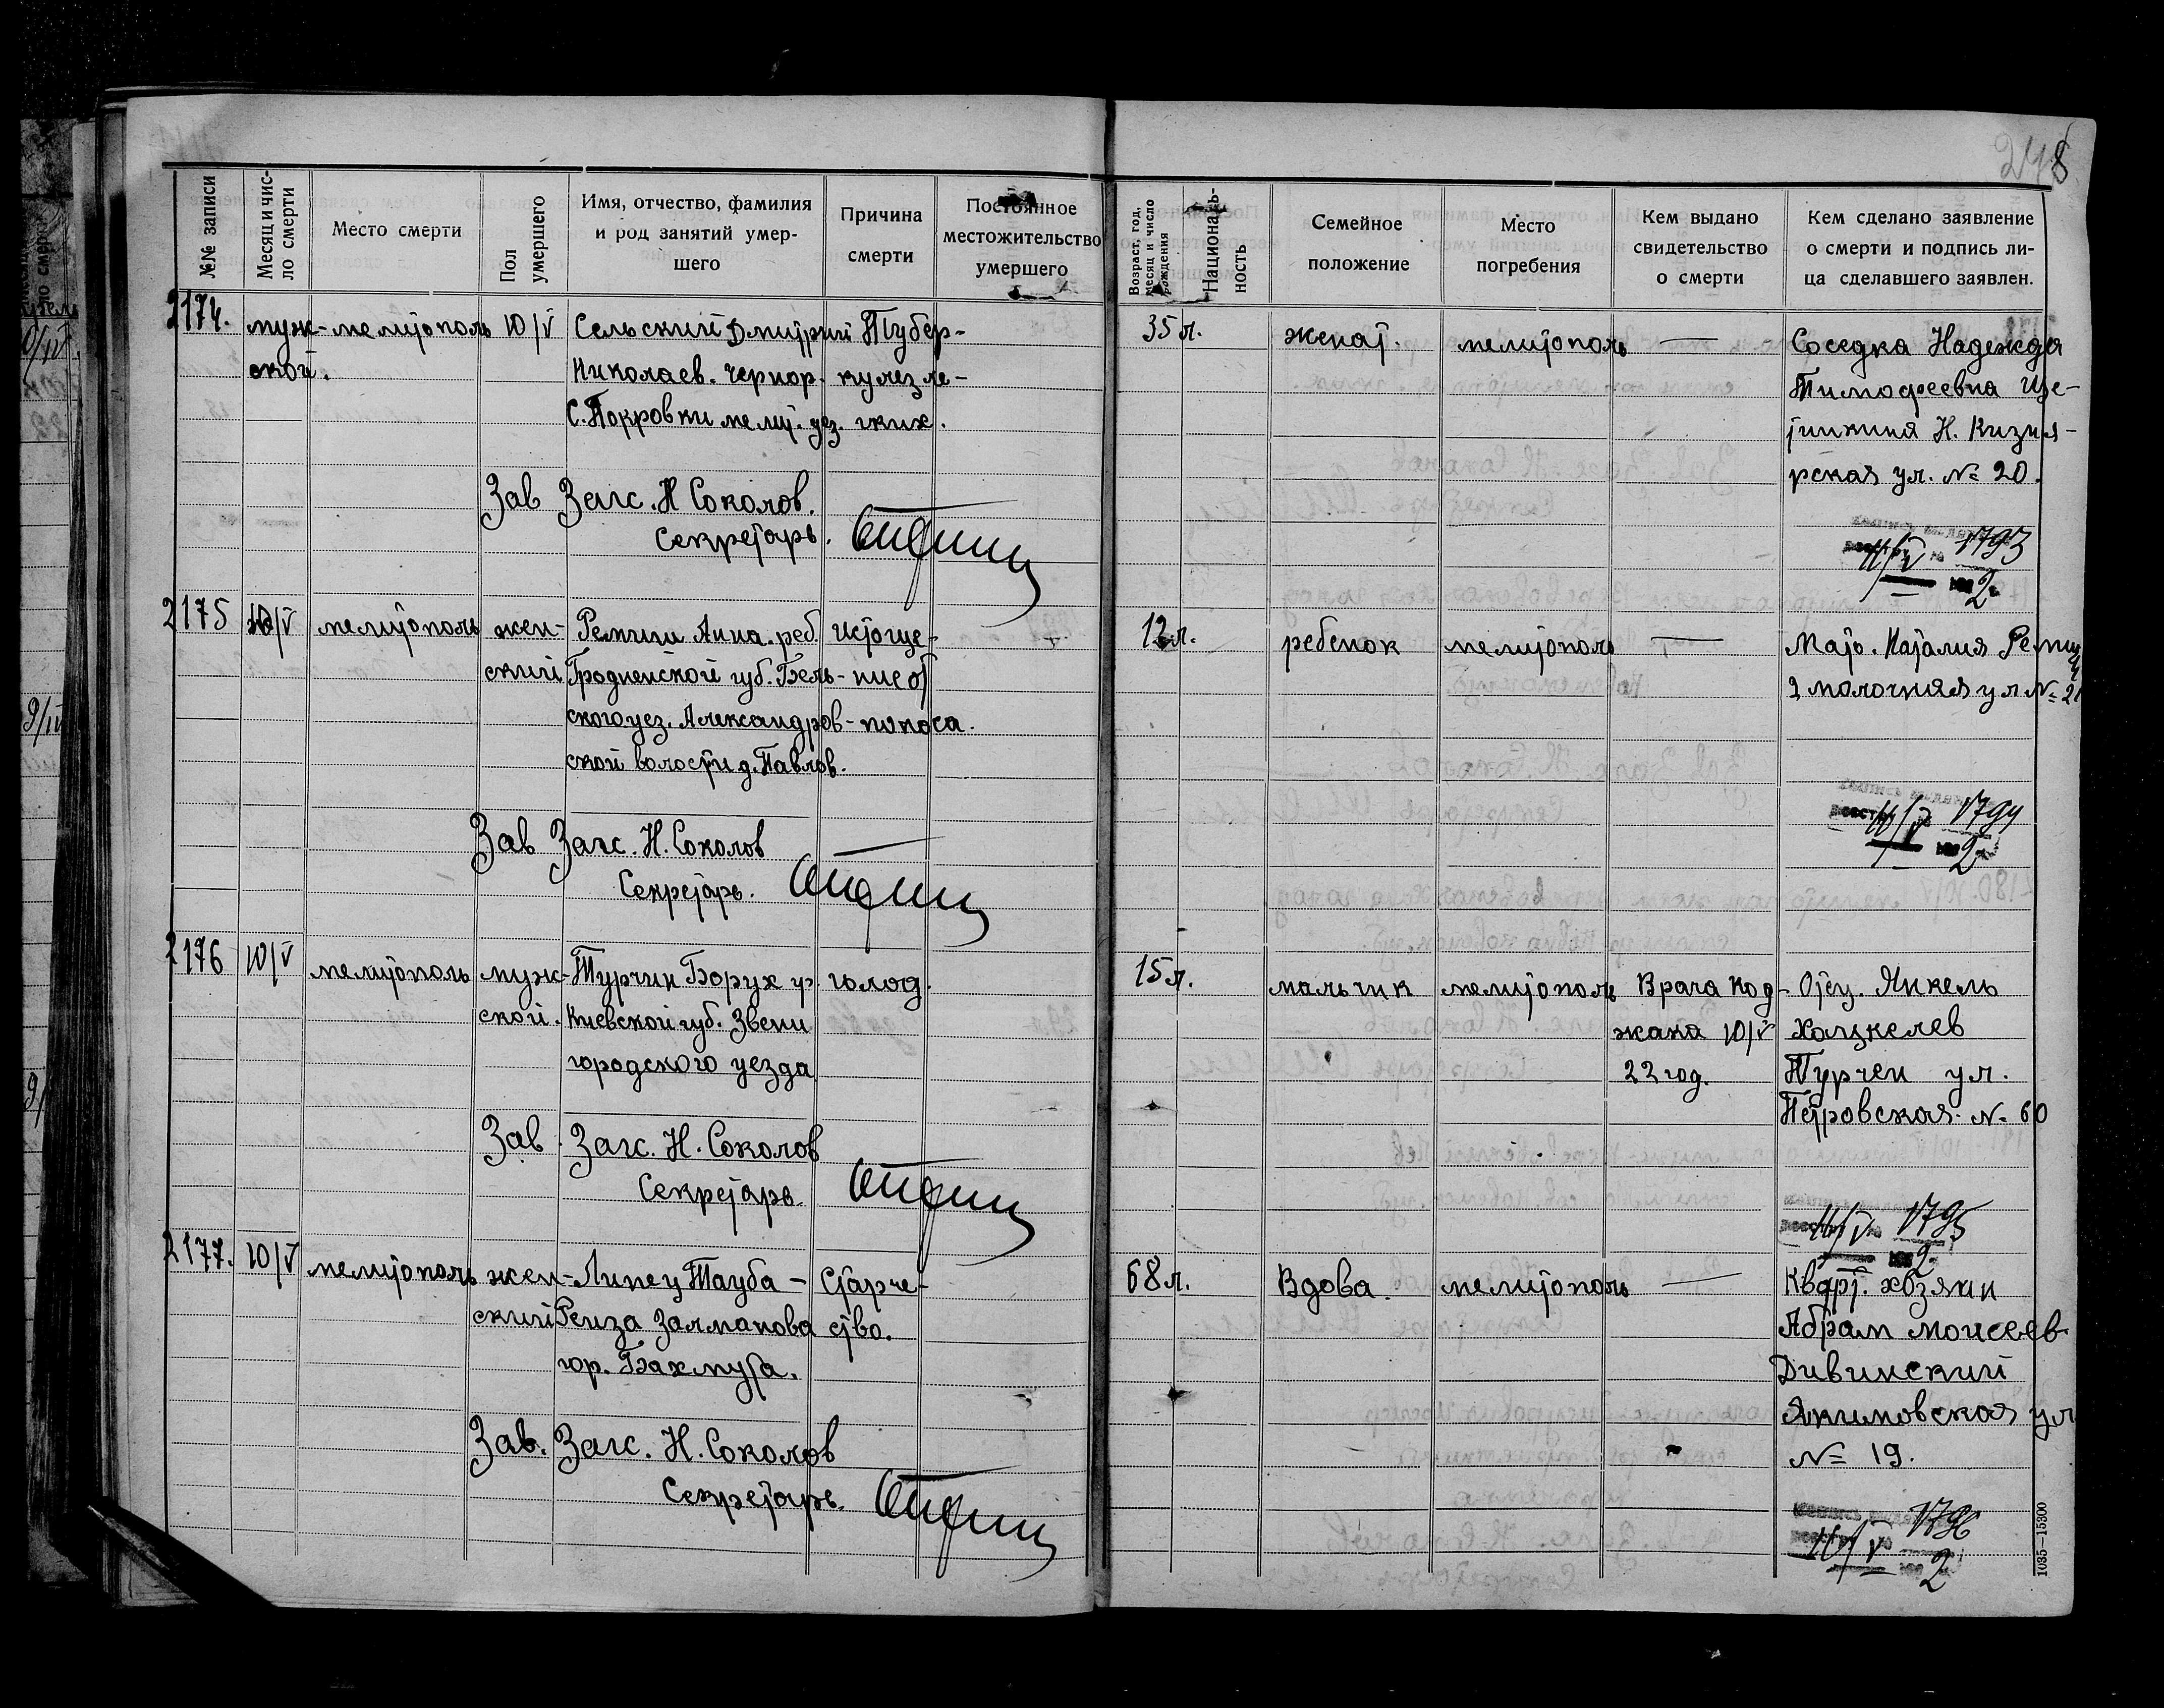 248
№№ записи
Месяц и чис-
ло смерти
Место смерти
Пол
умершего
Имя, отчество, фамилия
и род занятий умер-
шего
Причина
смерти
Постоянное
местожительство
умершего
Возраст, год,
месяц и число
рождения
Националь-
ность
Семейное
положение
Место
погребения
Кем выдано
свидетельство
о смерти
Кем сделано заявление
о смерти и подпись ли-
ца сделавшего заявлен.
2174.
муж-
ской.
мелитополь
10/V
Сельский Дмитрий
Николаев. чернор.
С. Покровки мелит. уез.
Тубер-
кулез ле-
гких.
35 л.
женат.
мелитополь
—
Соседка Надежда
Тимофеевна Ще-
тинина Н. Кизия-
рская ул. № 20.
Зав Загс. Н Соколов.
Секретарь.
11/V 1793
2
2175
10/V
мелитополь
жен-
ский
Ремиги Анна. реб.
Гродненской губ. Бель-
ского уез. Александров-
ской волости д. Павлов.
истоще-
ние от
поноса.
12 л.
ребенок
мелитополь
—
Мать. Наталия
2 молочная ул № 21
Зав Загс. Н. Соколов
Секретарь.
11/V 1794
2
2176
10/V
мелитополь
муж-
ской.
Турчин Борух гр.
Киевской губ. Звени
городского уезда
голод.
15 л.
мальчик
мелитополь
Врача Код-
жака 10/V
22 год.
Отец. Янкель
Хацкелев
Турчен ул.
Петровская. № 60
Зав. Загс. Н. Соколов
Секретарь.
11/V 1795
2
2177.
10/V
мелитополь
жен-
ский
Липец Тауба —
Рейза Залманова
гор. Бахмута.
Старче-
ство.
68 л.
Вдова.
мелитополь
—
Кварт. хозяин
Абрам Моисеев.
Дивинский
Якимовская ул
№ 19.
Зав. Загс. Н. Соколов
Секретарь.
11/V 1796
2
1035—15300